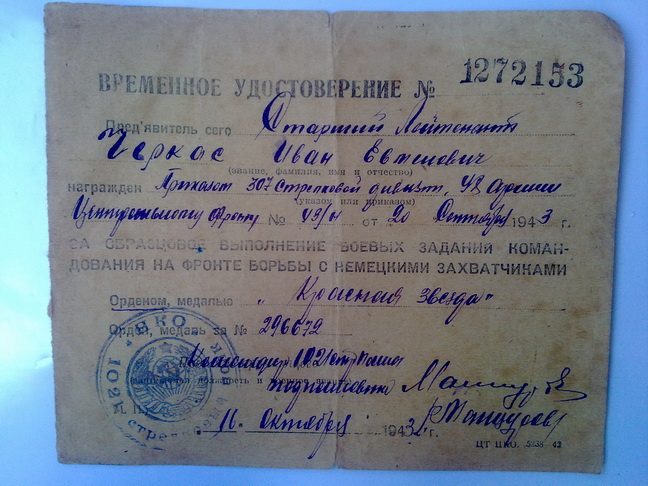 ВРЕМЕННОЕ УДОСТОВЕРЕНИЕ № 1272153
Пред'явитель сего Старший Лейтенант
Черкас Иван Евтеиович
(звание, фамилия, имя и отчество)
награжден Приказом 307 Стрелковой дивизии, 42 Армии
(указом или приказом)
Центрального фронту № 43/н от 20 Сентября 1943 г.
ЗА ОБРАЗЦОВОЕ ВЫПОЛНЕНИЕ БОЕВЫХ ЗАДАНИЙ КОМАН-
ДОВАНИЯ НА ФРОНТЕ БОРЬБЫ С НЕМЕЦКИМИ ЗАХВАТЧИКАМИ
Орденом, медалью „Красная звезда"
Орден, медаль за № 296672
Командир 1021 стр полка
должность и
подполковник
16. октября 1943 г.
ЦТ НКО. 5838—43
НКО
стрелковый